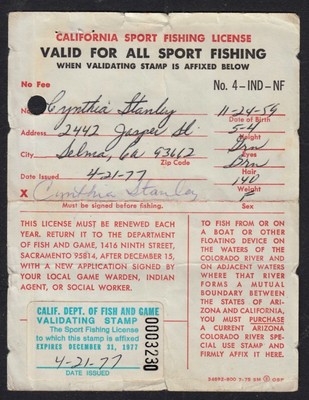 CALIFORNIA SPORT FISHING LICENSE
VALID FOR ALL SPORT FISHING
WHEN VALIDATING STAMP IS AFFIXED BELOW
No Fee No. 4-IND-NF
Name Cynthia Stanley 11-24-59
Date of Birth
Address 2442 Jasper St. 5-4
Height
City Selma, Ca 93662 Brn
Zip Code Eyes
Brn
Date Issued 4-21-77 Hair
140
X Cynthia Stanley Weight
Must be signed before fishing. Sex
THIS LICENSE MUST BE RENEWED EACH
YEAR. RETURN IT TO THE DEPARTMENT
OF FISH AND GAME, 1416 NINTH STREET,
SACRAMENTO 95814, AFTER DECEMBER 15,
WITH A NEW APPLICATION SIGNED BY
YOUR LOCAL GAME WARDEN, INDIAN
AGENT, OR SOCIAL WORKER.
TO FISH FROM OR ON
A BOAT OR OTHER
FLOATING DEVICE ON
THE WATERS OF THE
COLORADO RIVER AND
ON ADJACENT WATERS
WHERE THAT RIVER
FORMS A MUTUAL
BOUNDARY BETWEEN
THE STATES OF ARI-
ZONA AND CALIFORNIA,
YOU MUST PURCHASE
A CURRENT ARIZONA
COLORADO RIVER SPE-
CIAL USE STAMP AND
FIRMLY AFFIX IT HERE.
CALIF. DEPT. OF FISH AND GAME
VALIDATING STAMP
The Sport Fishing License
to which this stamp is affixed
EXPIRES DECEMBER 31, 1977
4-21-77
DATE ISSUED
0003230
OSP